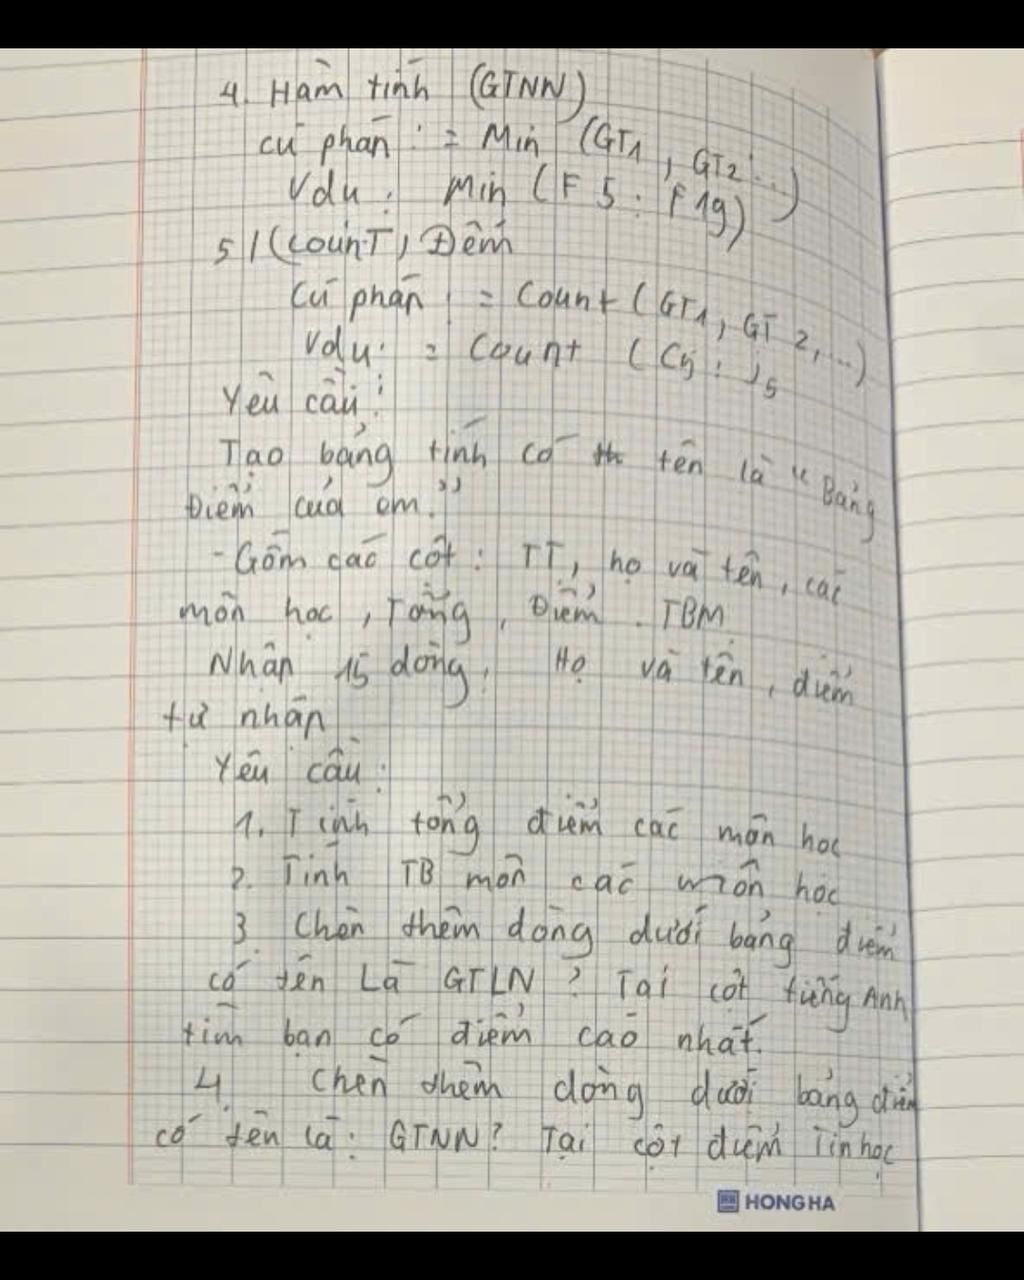 4. Hàm tính (GTNN)
cú pháp : = Min (GT1, GT2...)
Vdụ : Min (F5 : F19)
5/ (CounT) Đếm
Cú pháp : = Count (GT1, GT2,...)
Vdụ : = Count (C5 :
Yêu cầu :
Tạo bảng tính có tên là "Bảng
Điểm của em."
- Gồm các cột : TT, họ và tên, các
môn học, Tổng, Điểm. TBM
Nhập 15 dòng, Họ và tên, điểm
tự nhập
Yêu cầu :
1. Tính tổng điểm các môn học
2. Tính TB môn các môn học
3. Chèn thêm dòng dưới bảng điểm
có tên Là GTLN ? Tại cột tiếng Anh
tìm bạn có điểm cao nhất.
4. Chèn thêm dòng dưới bảng điểm
có tên là : GTNN? Tại cột điểm Tin học
HONG HA